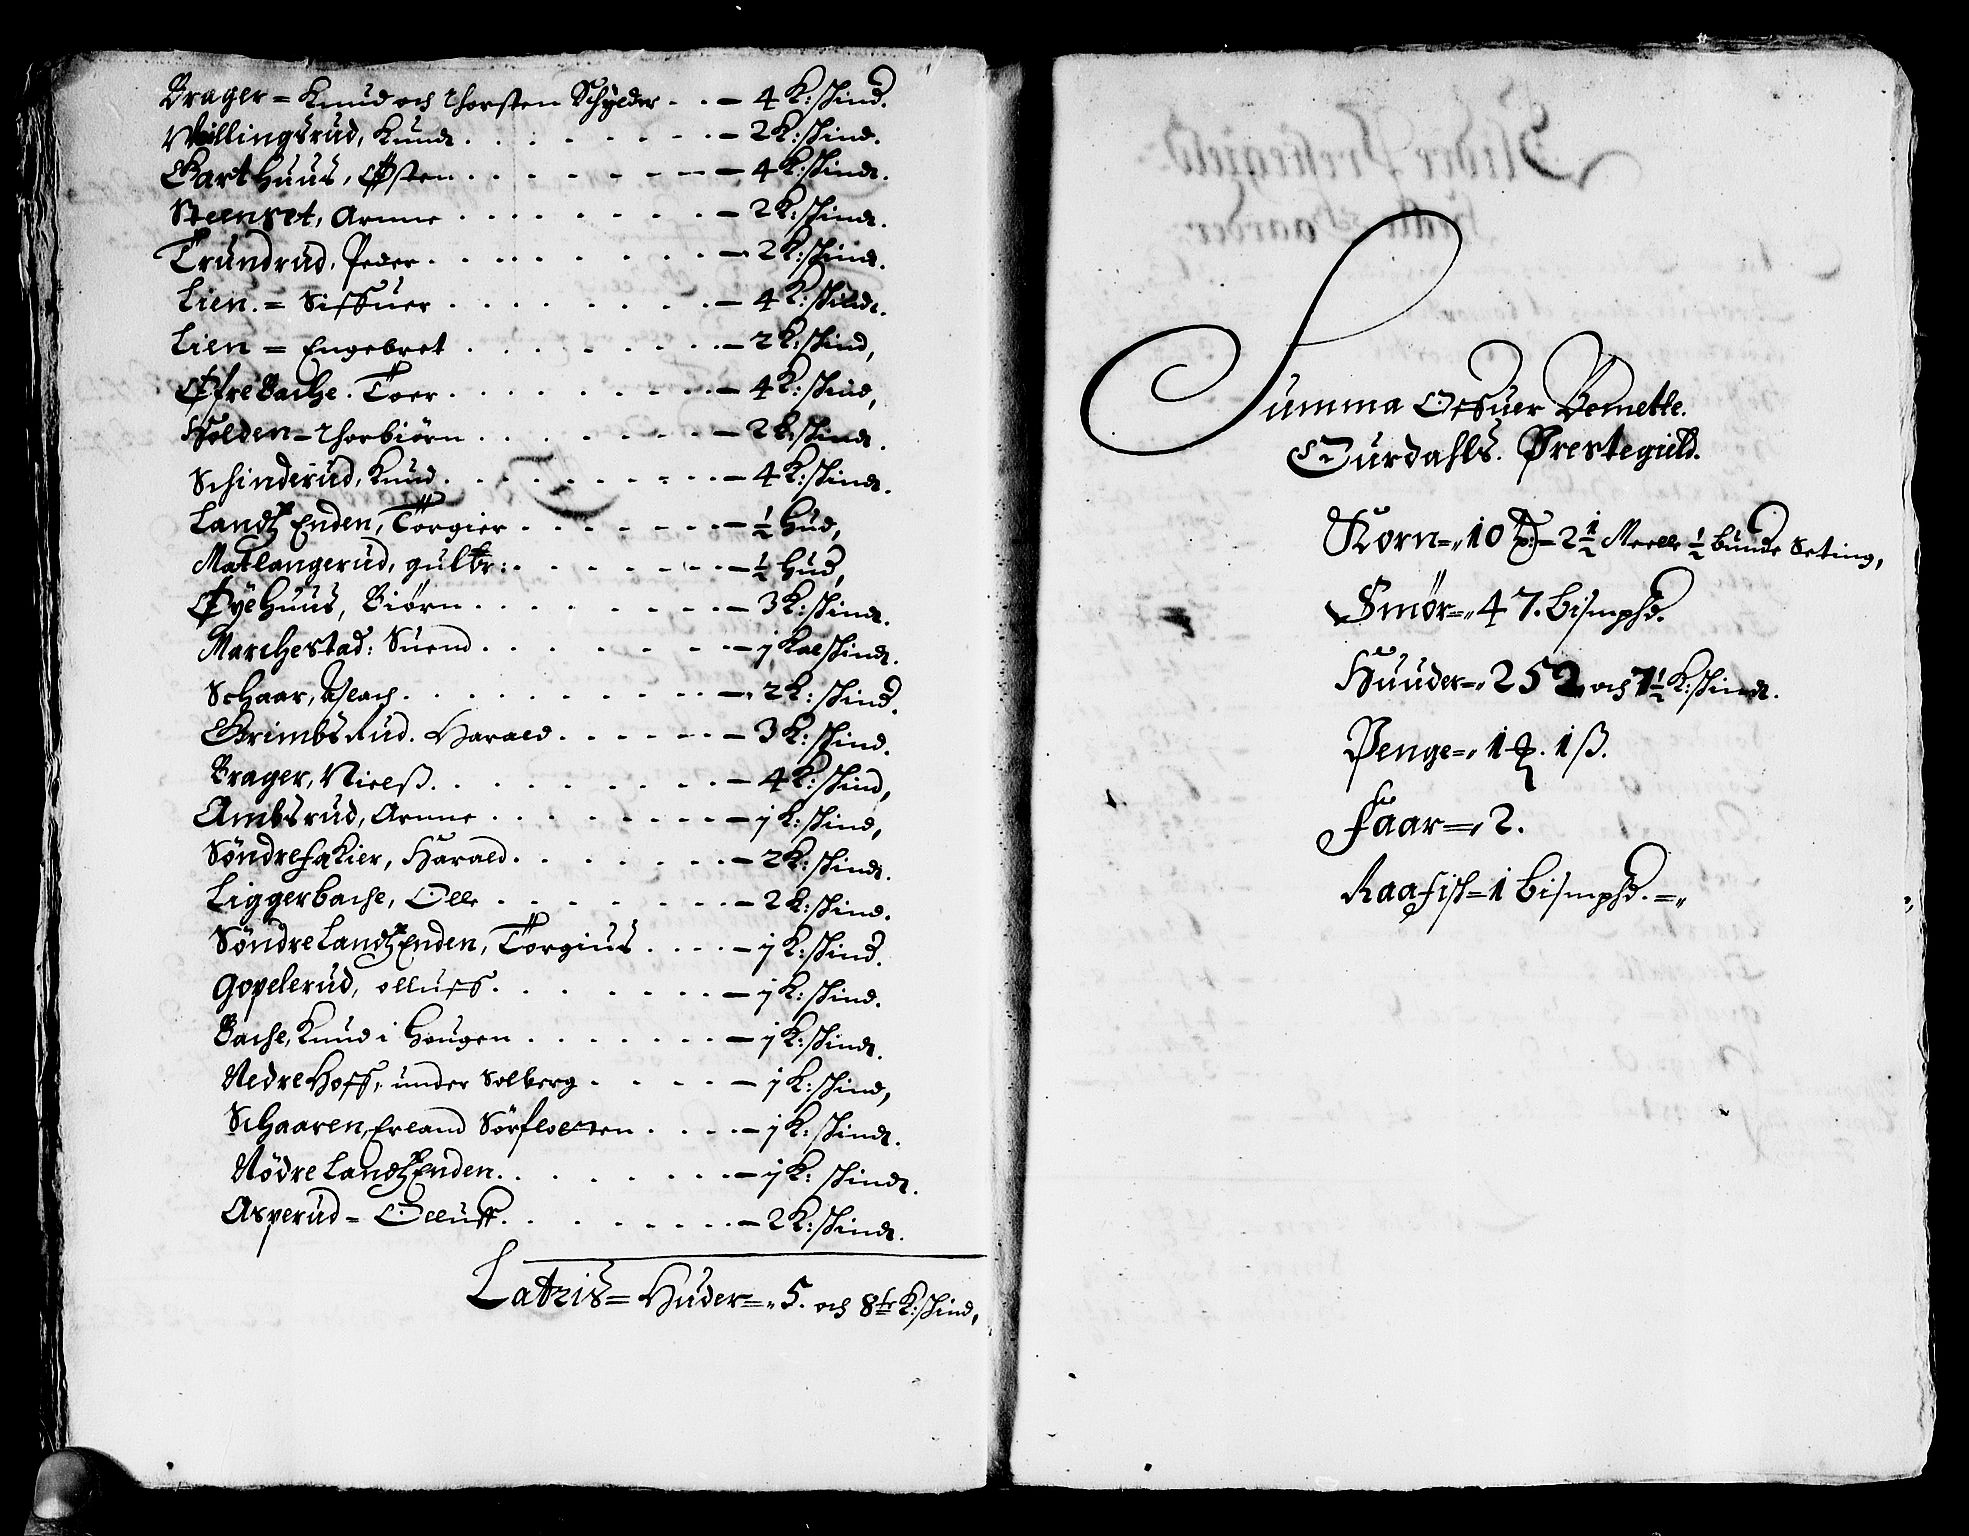 Brager = Knud och Thorsten Schÿlder . . — 4 K: skind.
Willingsrud, Knud . . . . . . . — 2 K: skind.
Garthuus, Østen . . . . . . . — 4 K: skind.
Steenset, Arnne . . . . . . . — 2 K: skind.
Trundrud, Peder . . . . . . . — 2 K: skind.
Lien. = Siffuer . . . . . . . — 4 K: skind.
Lien = Engebret . . . . . . . — 2 K: skind,
Øfre Bache. Toer . . . . . . . — 4 K: skind,
Holden – Thorbiørn . . . . . . . — 2 K: skind.
Schinderud, Knud . . . . . . . — 4 K: skind.
Landtz Enden, Torgier . . . . . . — ½ Hud,
Matlangerud, gulbr: . . . . . . — ½ Hud,
Øÿehuus, Biørn . . . . . . . — 3 K: skind.
Marchestad: Suend . . . . . . . — j Kalskind.
Schaar, Aslach . . . . . . . — 2 K: skind.
Grimbsrud. Harald . . . . . . — 3 K: skind.
Brager, Nielß . . . . . . . — 4 K: skind,
Ambsrud, Arnne . . . . . . . — j K: skind,
Søndre fakier, Harald . . . . . . — 2 K: skind.
Liggerbache, Olle . . . . . . . — 2 K: skind.
Søndre Landtz Enden, Torgius . . . . — j K: skind.
Gopelerud, olluff . . . . . . . — j K: skind.
Bache, Knud i Hougen . . . . . . . — j K: skind.
Nedre Hoff, under Solberg . . . . — j K: skind,
Schaaren, Erland Sørfloeten . . . . — j K: skind.
Nödre Landtz Enden . . . . . . . — j K: skind.
Asperud = Olluff . . . . . . . — 2 K: skind.
Latris = Huder = 5. och 8te K: skind,
Summa Offuer Bemelte.
Ourdahls. Prestegield.
Korn = 10 2½ Meelle ½ bunde Seting,
Smør = 47. bismphd.
Huuder = 252 och 7½ K: skind.
Penge = 1 1 ß.
Faar = 2.
Raafisk = 1 bismphd. =